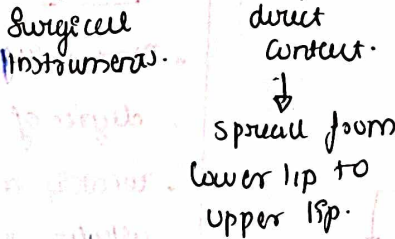 Surgical
Instruments.
direct
contact.
↓
spread from
lower lip to
upper lip.